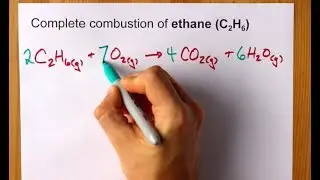 Complete combustion of ethane (C₂H₆)
2C₂H₆(g) + 7O₂(g) → 4CO₂(g) + 6H₂O(g)